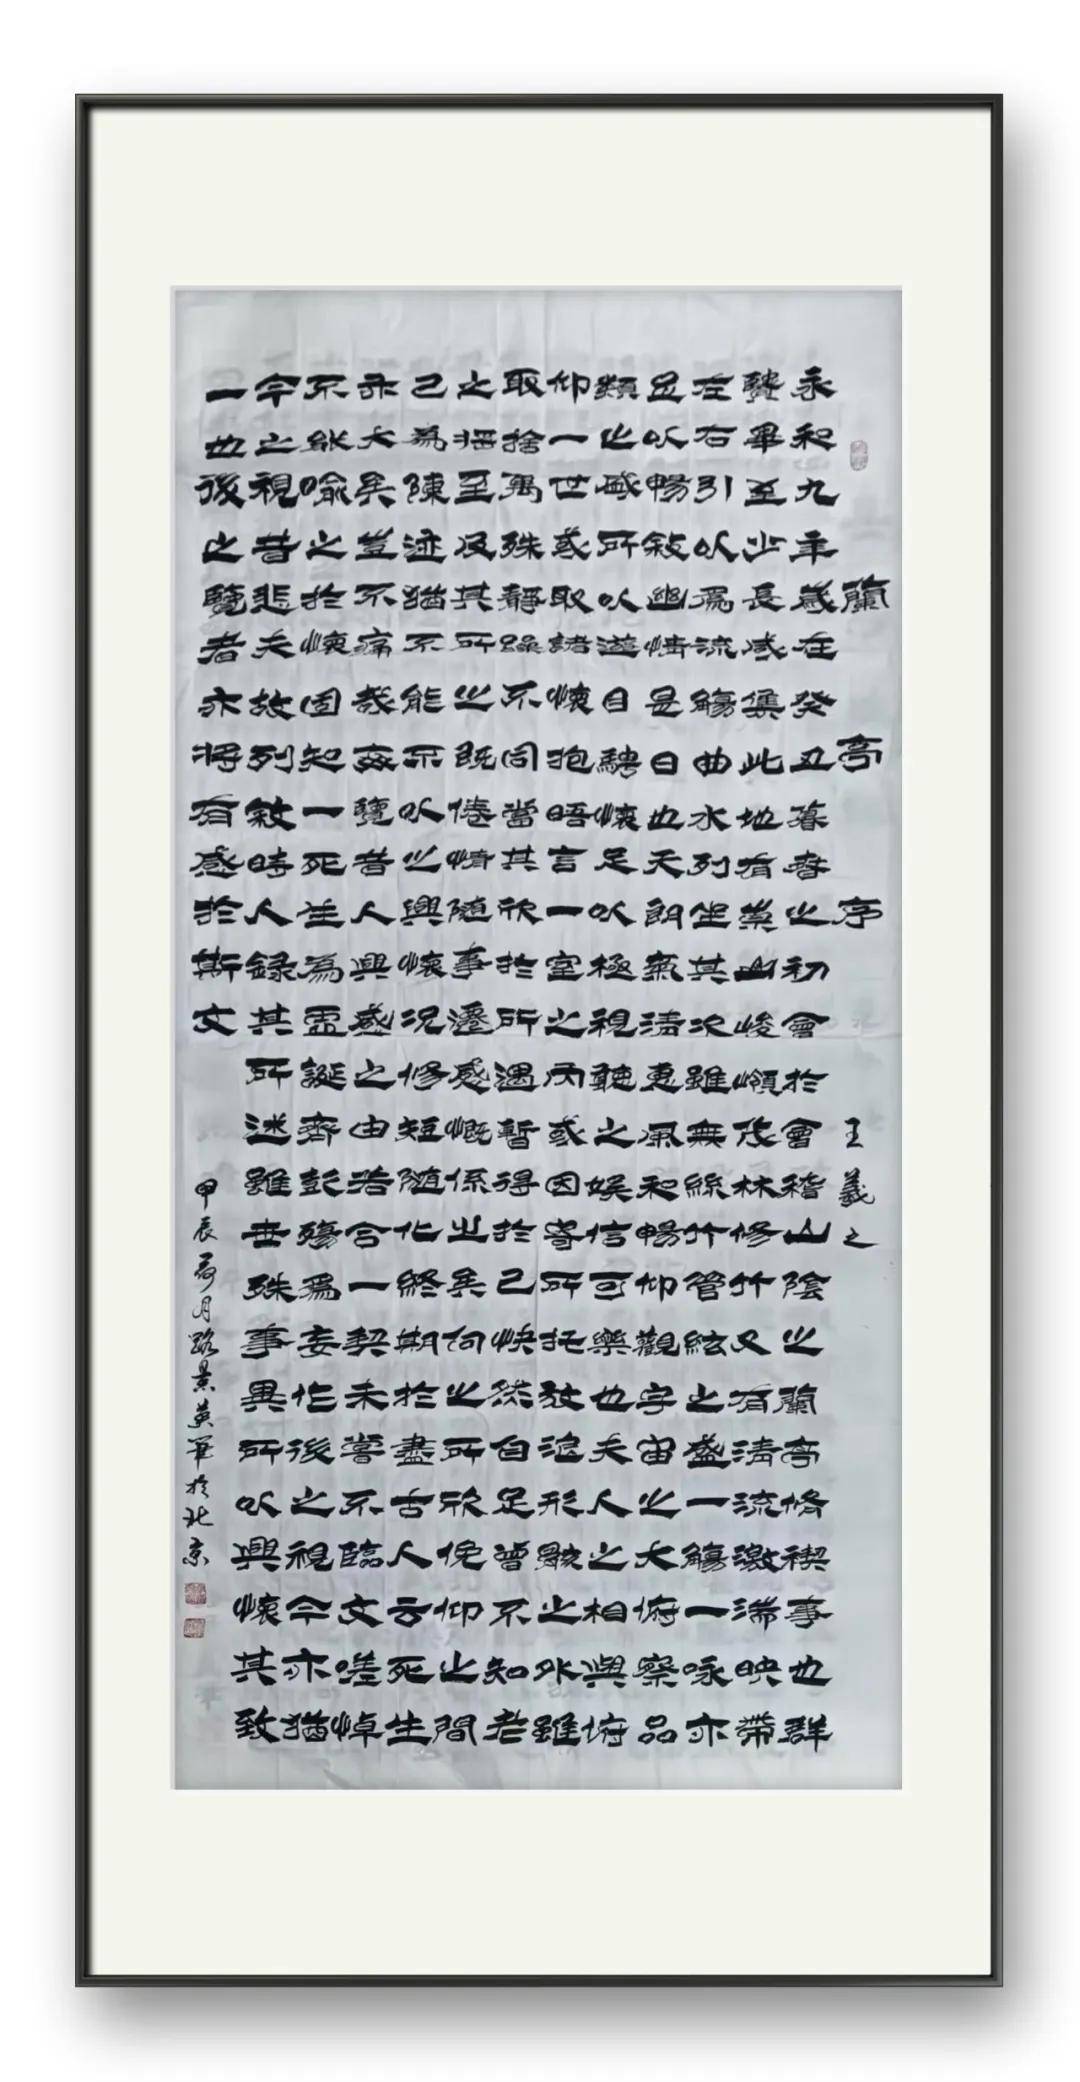 蘭亭序 王羲之
永和九年歲在癸丑暮春之初會於會稽山陰之蘭亭脩禊事也群
賢畢至少長咸集此地有崇山峻嶺茂林修竹又有清流激湍映帶
左右引以爲流觴曲水列坐其次雖無絲竹管絃之盛一觴一詠亦
足以暢敘幽情是日也天朗氣清惠風和暢仰觀宇宙之大俯察品
類之盛所以遊目騁懷足以極視聽之娛信可樂也夫人之相與俯
仰一世或取諸懷抱晤言一室之內或因寄所托放浪形骸之外雖
取捨萬殊靜躁不同當其欣於所遇暫得於己快然自足曾不知老
之將至及其所之既倦情隨事遷感慨係之矣向之所欣俛仰之間
已爲陳迹猶不能不以之興懷況修短隨化終期於盡古人云死生
亦大矣豈不痛哉每覽昔人興感之由若合一契未嘗不臨文嗟悼
不能喻之於懷固知一死生為虛誕齊彭殤爲妄作後之視今亦猶
今之視昔悲夫故列敘時人錄其所述雖世殊事異所以興懷其致
一也後之覽者亦將有感於斯文
甲辰荷月路景英筆於北京